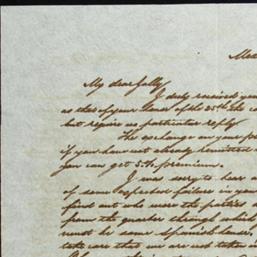 Me
My dear
I duly received you
as that of your of the 25th
but require no particular reply
The exchange on your
if you have not already remitted
you can get 5 th. premium.
I was sorry to hear
of some expected failure in you
find out who were the parties a
from the quarter through which
must be some Spanish house.
take care that we are not taken